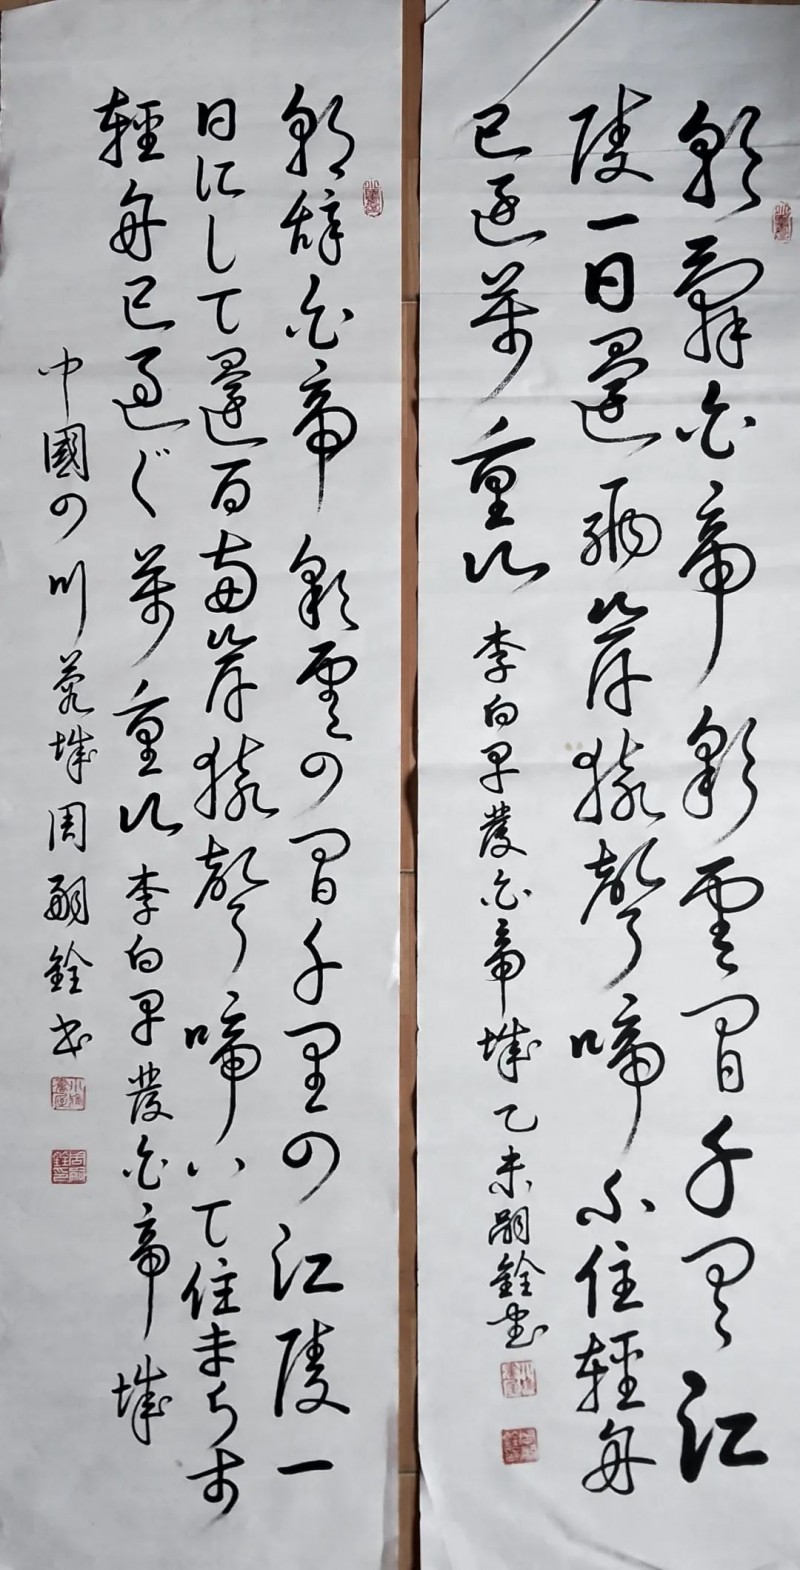 朝辭白帝彩雲間千里江
陵一日還兩岸猿聲啼不住輕舟
已過萬重山 李白早發白帝城 乙未嗣銓書
朝辞白帝彩雲の間千里の江陵一
日にして還る両岸猿聲啼いて住まらず
輕舟已過ぐ萬重山 李白早發白帝城
中國四川蓉城周嗣銓书